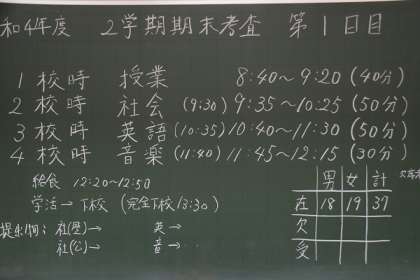 和4年度 2学期期末考査 第1日目
1校時 授業 8:40～9:20(40分)
2校時 社会 (9:30) 9:35～10:25(50分)
3校時 英語 (10:35) 10:40～11:30(50分)
4校時 音楽 (11:40) 11:45～12:15(30分)
給食 12:20～12:50
学活→下校 (完全下校13:30)
提出物; 社(歴)→ 英→
社(公)→ 音→
男 女 計
在 18 19 37
欠
受